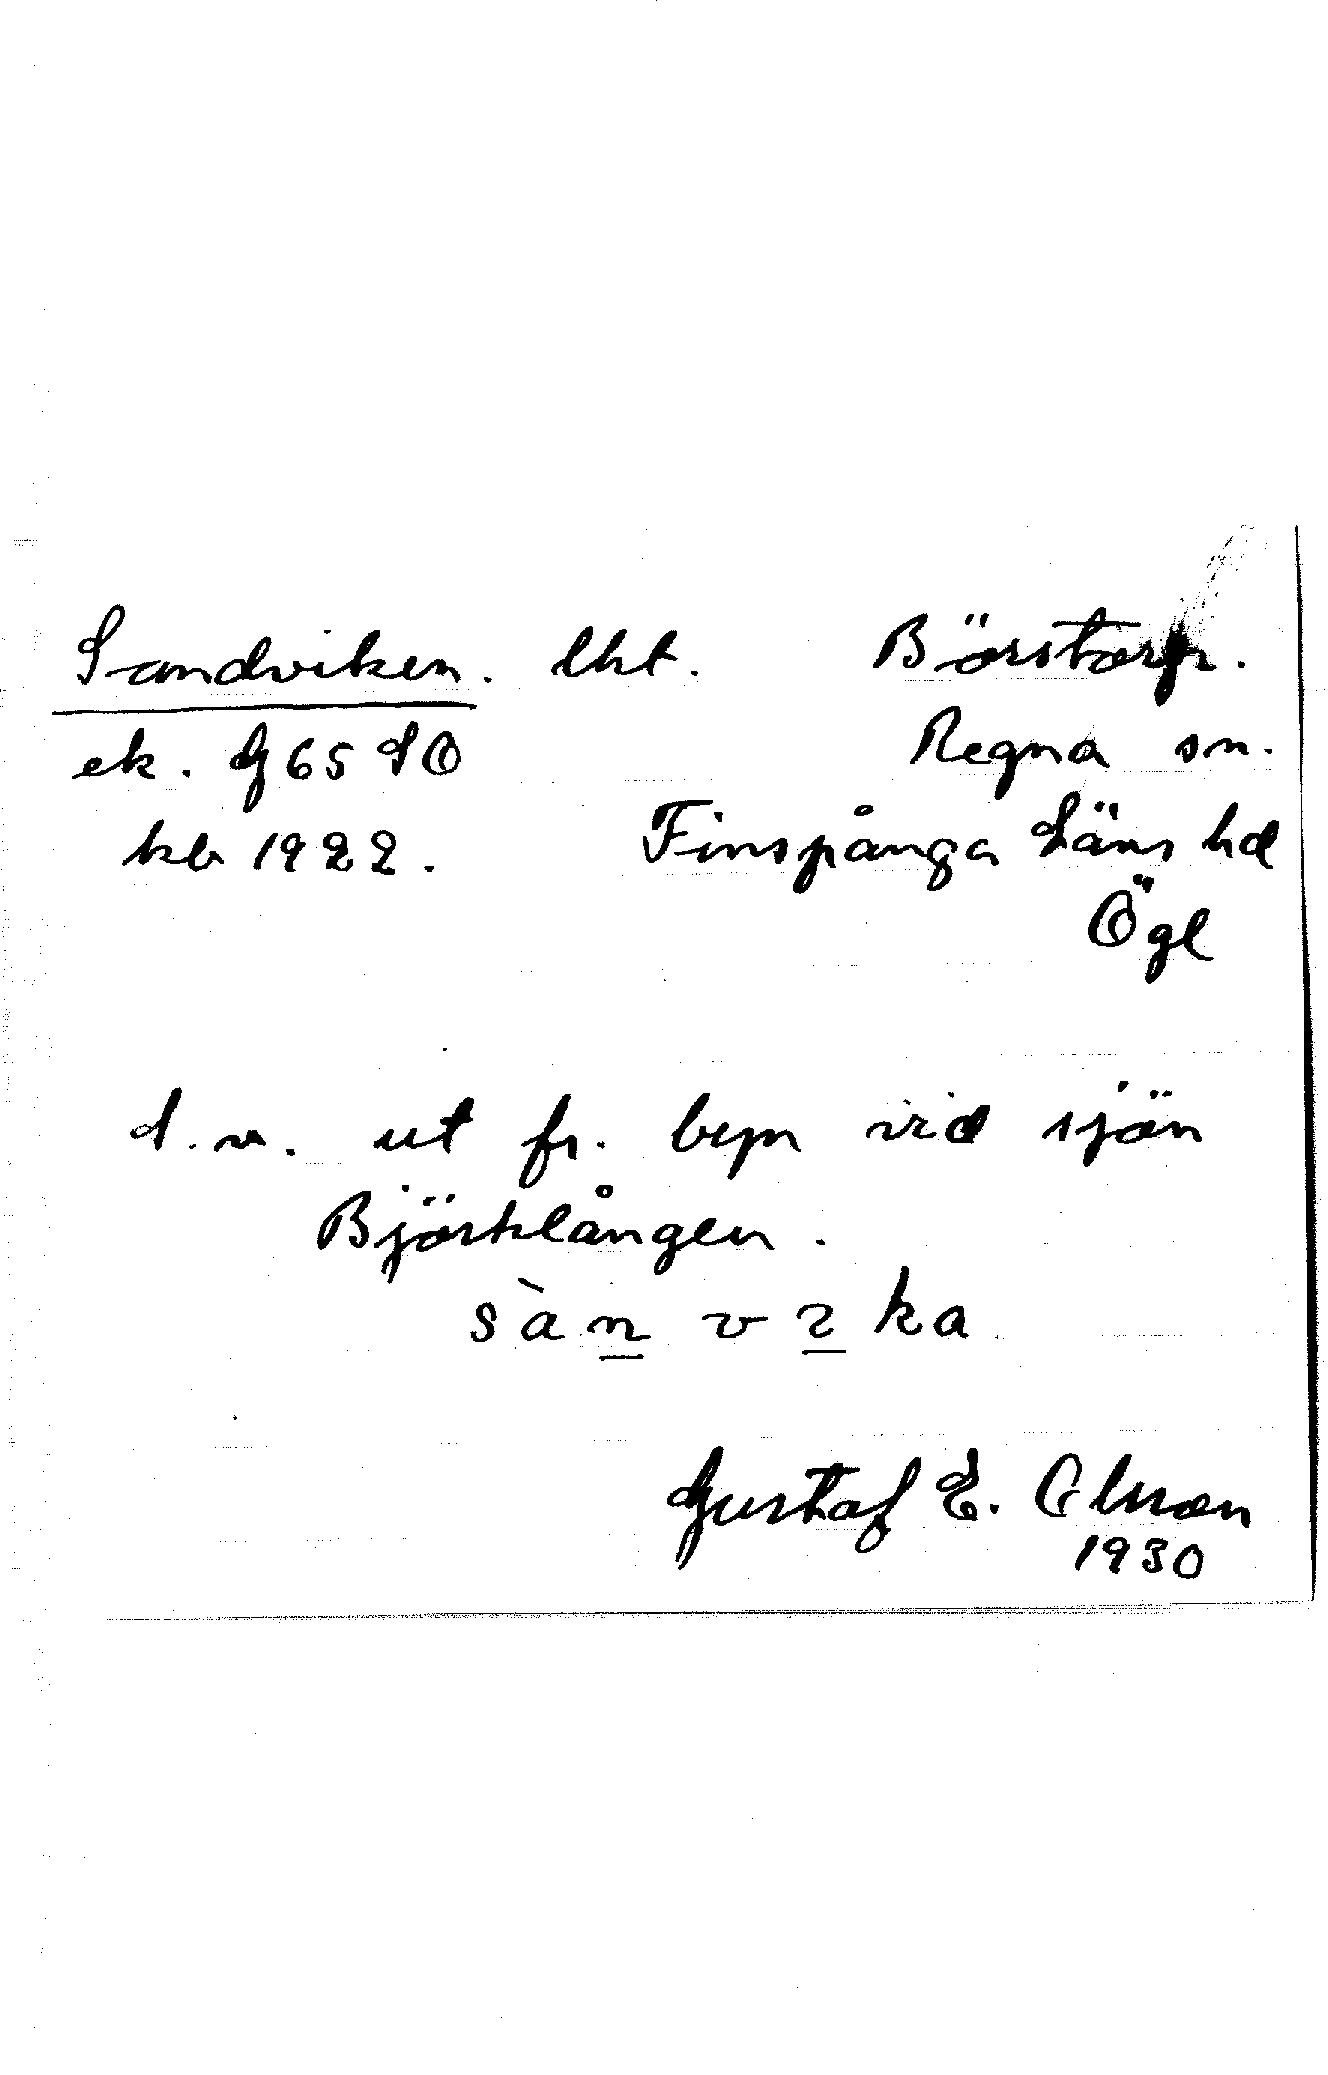 Sandviken. lht. Börstorp.
ek. G 65 SO Regna sn.
kb 1922. Finspånga Läns hd
Ögl
S.v. ut fr. byn vid sjön
Björklången.
sàn v ka
Gustaf E. Olsson
1930